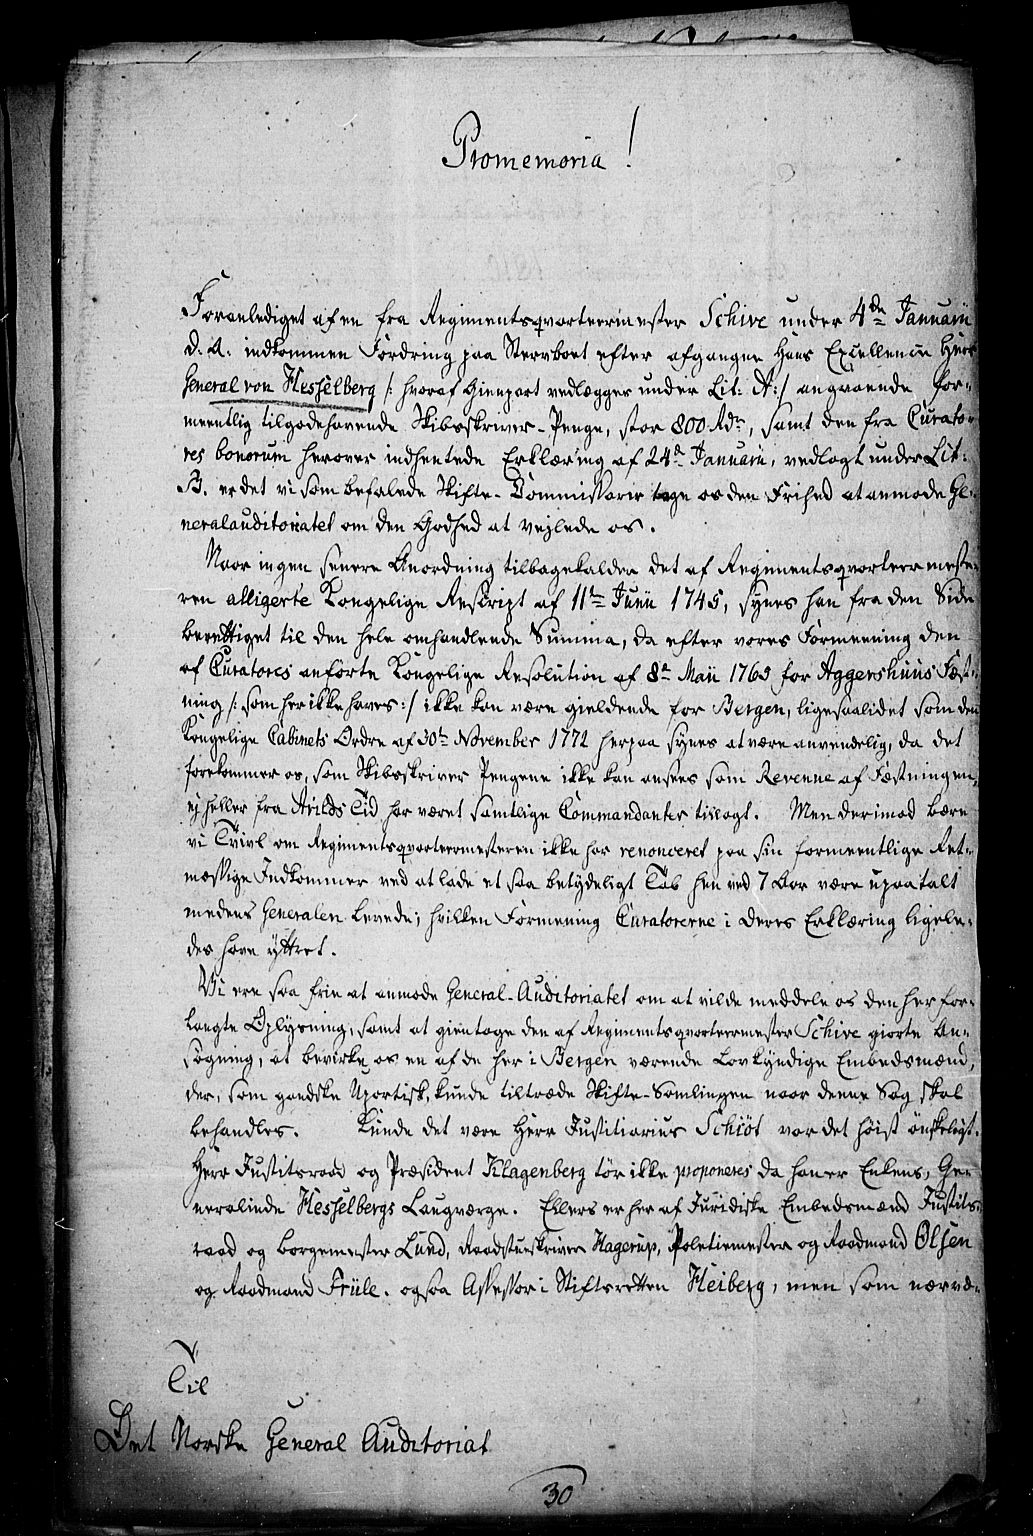 Promemoria!
Foranlediget af en fra Regimentsqvarteermester Schive under 4de Januarii
d. A. indkommen Fordring paa Stervboet efter afgangne Hans Excellence Herr
General von Hesselberg /: hvoraf Gienpart vedlægges under Lit: A :/ angaaende for-
meentlig tilgodehavende Skibsskriver-Penge, stor 800 Rdr, samt den fra Curato-
res bonorum herover indhentede Erklæring af 24de Januarii, vedlagt under Lit:
B. er det vi som befalede Skifte-Commissarier tage os den Frihed at anmode Ge-
neralauditoriatet om den Godhed at vejlede os.
Naar ingen senere Anordning tilbagekalder det af Regimentsqvarteermeste-
ren alligerte Kongelige Rescript af 11te Junii 1745, synes han fra den Side
berettiget til den hele omhandlende Summa, da efter vores Formeening den
af Curatores anførte Kongelige Resolution af 8de Maii 1765 for Aggershuus Fæst-
ning /: som her ikke haves :/ ikke kan være gieldende for Bergen, ligesaalidet som den
Kongelige Cabinets Ordre af 30te November 1772 herpaa synes at være anvendelig, da det
forekommer os, som Skibsskriver Pengene ikke kan ansees som Revenue af Fæstningen,
ej heller fra Arilds Tid har været samtlige Commandanter tillagt. Men derimod bære
vi Tvivl om Regimentsqvarteermesteren ikke har renonceret paa sin formeentlige Ret-
mæssige Indkommer ved at lade et saa betydeligt Tab hen ved 7 Aar være upaatalt
medens Generalen levede; hvilken Formening Curatorerne i deres Erklæring ligele-
des have yttret.
Vi ere saa frie at anmode General-Auditoriatet om at vilde meddele os den her for-
langte Oplysning, samt at gientage den af Regimentsqvarteermester Schive giorte An-
søgning, at bevirke os en af de her i Bergen værende Lovkyndige Embedsmænd,
der, som gandske Upartisk, kunde tiltræde Skifte-Samlingen naar denne Sag skal
behandles. Kunde det være Herr Justitiarius Schiøt var det høist ønskeligt.
Herr Justitsraad og Præsident Klagenberg tør ikke proponeres da han er Enkens, Ge-
neralinde Hesselbergs Laugværge. Ellers er her af Juridiske Embedsmænd Justits-
raad og Borgemester Lund, Raadstueskriver Hagerup, Politiemester og Raadmand Olsen
og Raadmand Früle. ogsaa Assessor i Stiftsretten Heiberg, men som nærvæ-
Til
Det Norske General Auditoriat
30